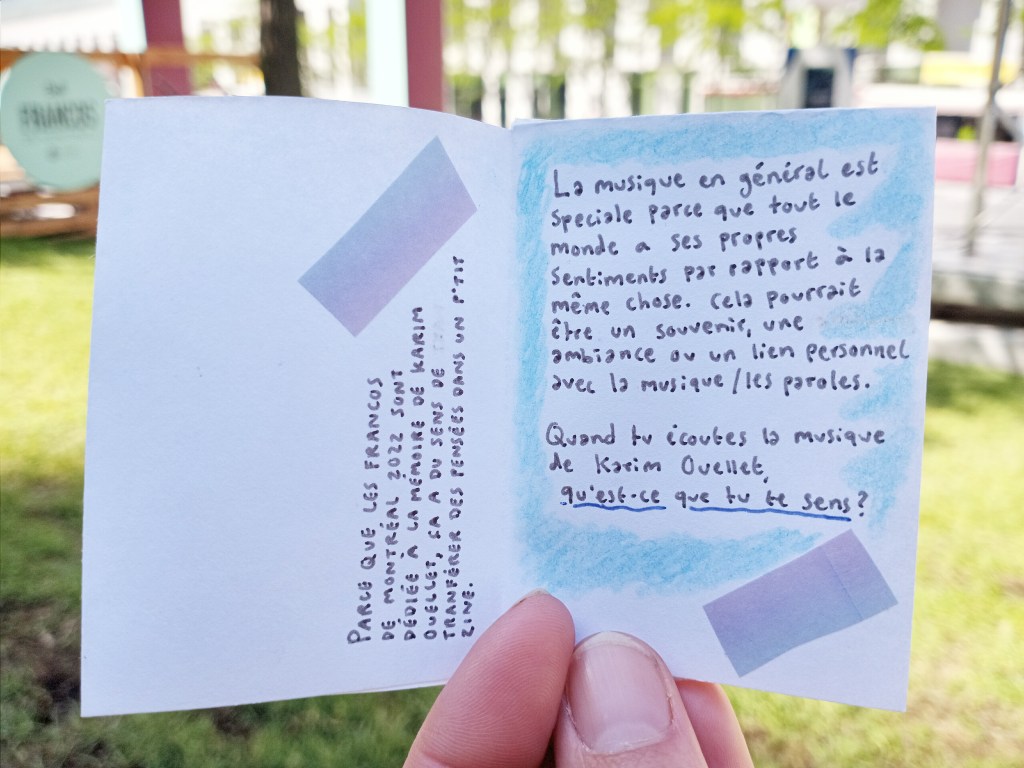 FRANCOS
PARCE QUE LES FRANCOS
DE MONTRÉAL 2022 SONT
DÉDIÉE À LA MÉMOIRE DE KARIM
OUELLET, ÇA A DU SENS DE
TRANFÉRER DES PENSÉES DANS UN P'TIT
ZINE.
La musique en général est
speciale parce que tout le
monde a ses propres
sentiments par rapport à la
même chose. Cela pourrait
être un souvenir, une
ambiance ou un lien personnel
avec la musique/les paroles.
Quand tu écoutes la musique
de Karim Ouellet,
qu'est-ce que tu te sens?